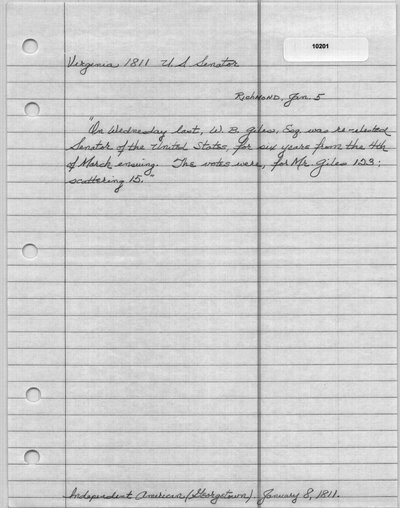 10201
Virginia 1811 U S Senator
RICHMOND, Jan. 5
"On Wednesday last, W. B. Giles, Esq. was re-elected
Senator of the United States, for six years from the 4th
of March ensuing. The votes were, for Mr. Giles 123;
scattering 15."
Independent American (Georgetown). January 8, 1811.